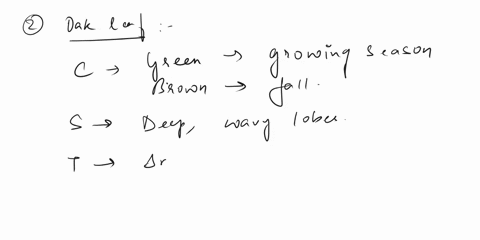 ② Oak leaf :-
C → Green → growing season
Brown → fall.
S → Deep, wavy lobes.
T →